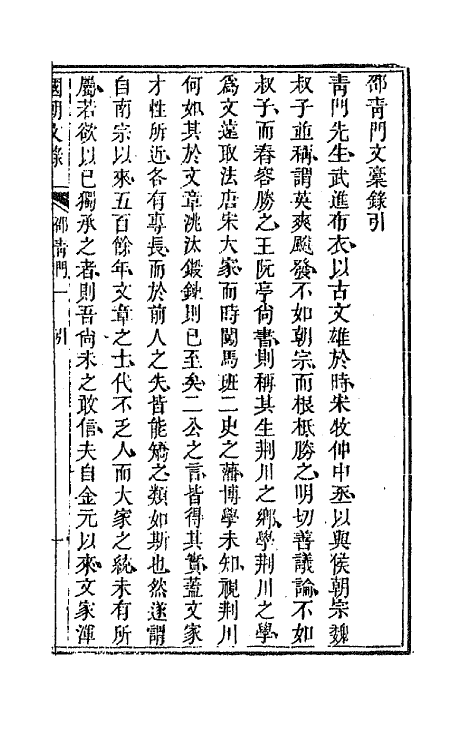 邵青門文稾錄引
青門先生武進布衣以古文雄於時宋牧仲中丞以與侯朝宗魏
叔子並稱謂英爽颷發不如朝宗而根柢勝之明切善議論不如
叔子而舂容勝之王阮亭尚書則稱其生荆川之鄉學荆川之學
爲文遠取法唐宋大家而時闖馬班二史之藩博學未知視荆川
何如其於文章洮汰鍛鍊則已至矣二公之言皆得其實蓋文家
才性所近各有專長而於前人之失皆能矯之類如斯也然遂謂
自南宗以來五百餘年文章之士代不乏人而大家之統未有所
屬若欲以已獨承之者則吾尚未之敢信夫自金元以來文家渾
國朝文錄 邵青門 引 一